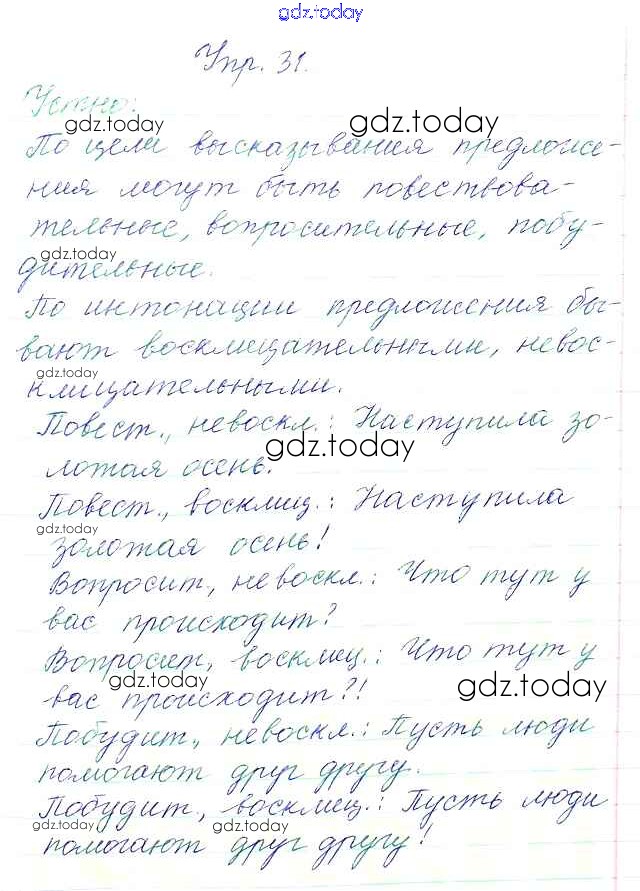 gdz.today
Упр. 31.
Устно:
gdz.today
gdz.today
По цели высказывания предложе-
ния могут быть повествова-
тельные, вопросительные, побу-
gdz.today
дительные.
По интонации предложения бы-
вают восклицательными, невос-
gdz.today
клицательными.
Повест., невоскл.: Наступила зо-
gdz.today
лотая осень.
Повест., восклиц.: Наступила
gdz.today
золотая осень!
Вопросит., невоскл.: Что тут у
вас происходит?
Вопросит., восклиц.: Что тут у
gdz.today
gdz.today
вас происходит?!
Побудит., невоскл.: Пусть люди
помогают друг другу.
Побудит., восклиц.: Пусть люди
gdz.today
gdz.today
помогают друг другу!